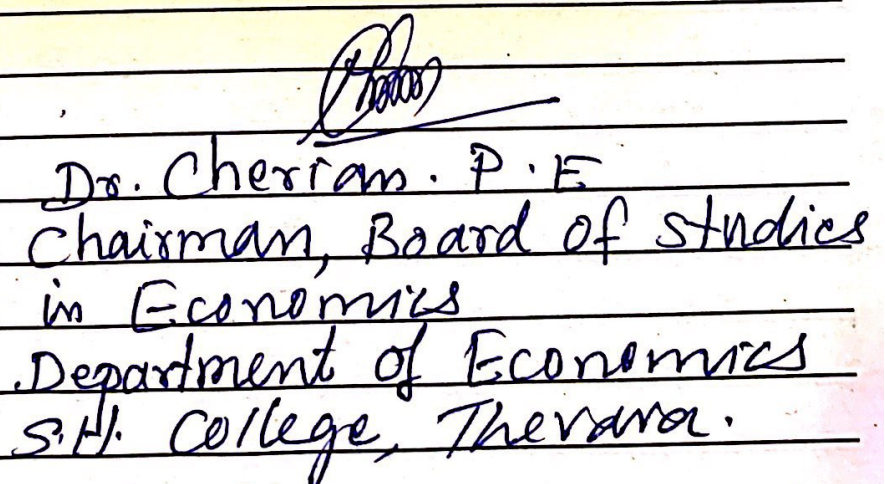 Dr. Cherian. P. E
Chairman, Board of studies
in Economics
Department of Economics
S.H. College, Thevara.